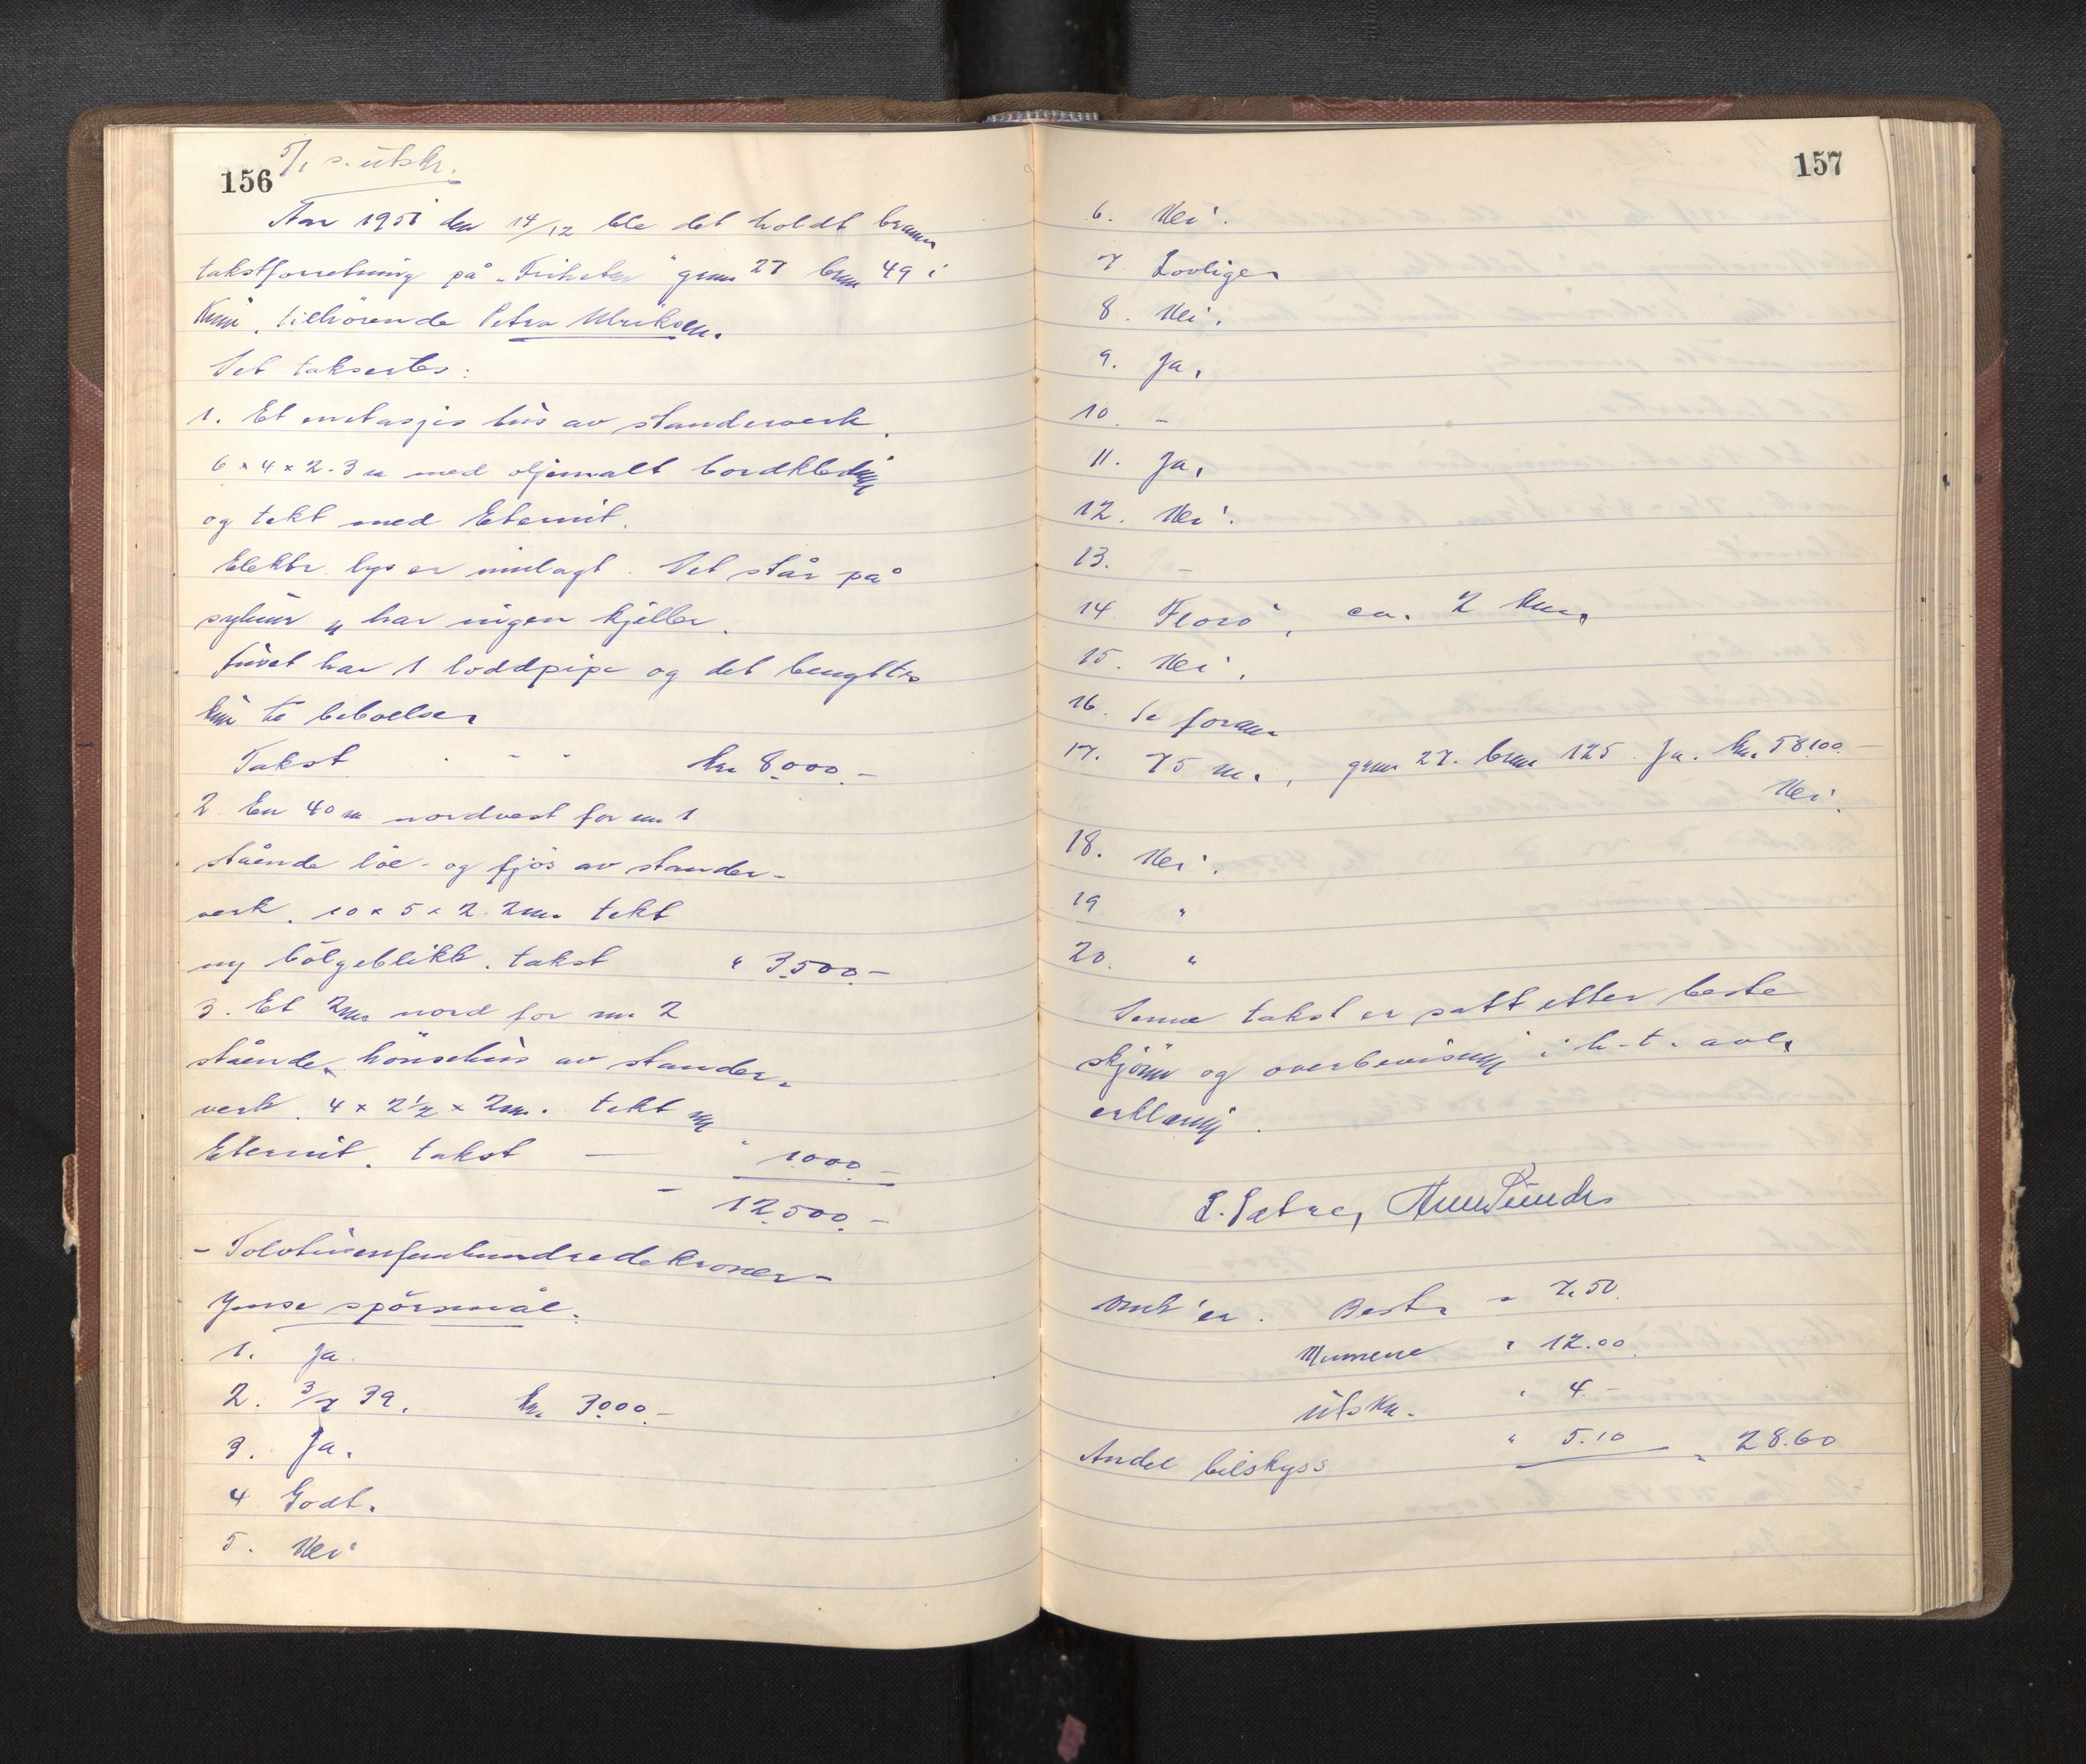 156
5/1 s. utskr.
Aar 1951 den 14/12 ble det holdt brann
takstforretning på "Friheten" gnr 27 bnr 49 i
Kinn, tilhörende Petra Ulriksen.
Det taksertes:
1. Et enetasjes hus av standerverk
6 x 4 x 2.3 m med oljemalt bordkledning
og tekt med Eternit.
Elektr. lys er innlagt. Det står på
og har ingen kjeller.
Huset har 1 loddpipe og det benyttes
kun til beboelse,
Takst . - - kr 8000.-
2. En 40 m nordvest for nr 1
stående löe- og fjös av stander-
verk. 10 x 5 x 2.2 m. tekt
m bölgeblikk. takst " 3500.-
3. Et 2 m nord for nr 2
stående hönsehus av stander-
verk. 4 x 2½ x 2 m. tekt m
Eternit. takst — " 1000.-
- 12.500.-
- Tolvtusenfemhundredekroner -
Ymse spörsmål.
1. Ja.
2. 3/7 39. kr. 3000.-
3. Ja.
4. Godt.
5. Nei
157
6. Nei.
7. Lovlige,
8. Nei.
9. Ja,
10. -
11. Ja,
12. Nei.
13. -
14. Florö, ca. 2 km,
15. Nei.
16. Se foran.
17. 75 m., gnr 27. bnr 125. Ja. kr. 58100.-
Nei.
18. Nei.
19. "
20. "
Denne takst er satt etter beste
skjönn og overbevisning i h.t. avl.
erklæring.
Omk'er. Bestr " 7.50.
Mennene " 12.00.
utskr. " 4.-
Andel bilskyss " 5.10 " 28.60